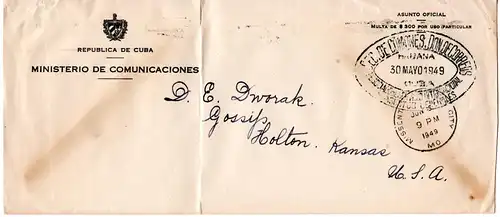 ASUNTO OFICIAL
MULTA DE $ 300 POR USO PARTICULAR
REPUBLICA DE CUBA
MINISTERIO DE COMUNICACIONES
HABANA
30 MAYO 1949
D. E. Dworak.
Gossip,
Holton, Kansas
U.S.A.
CITY
MO
JUN
9 PM
1949